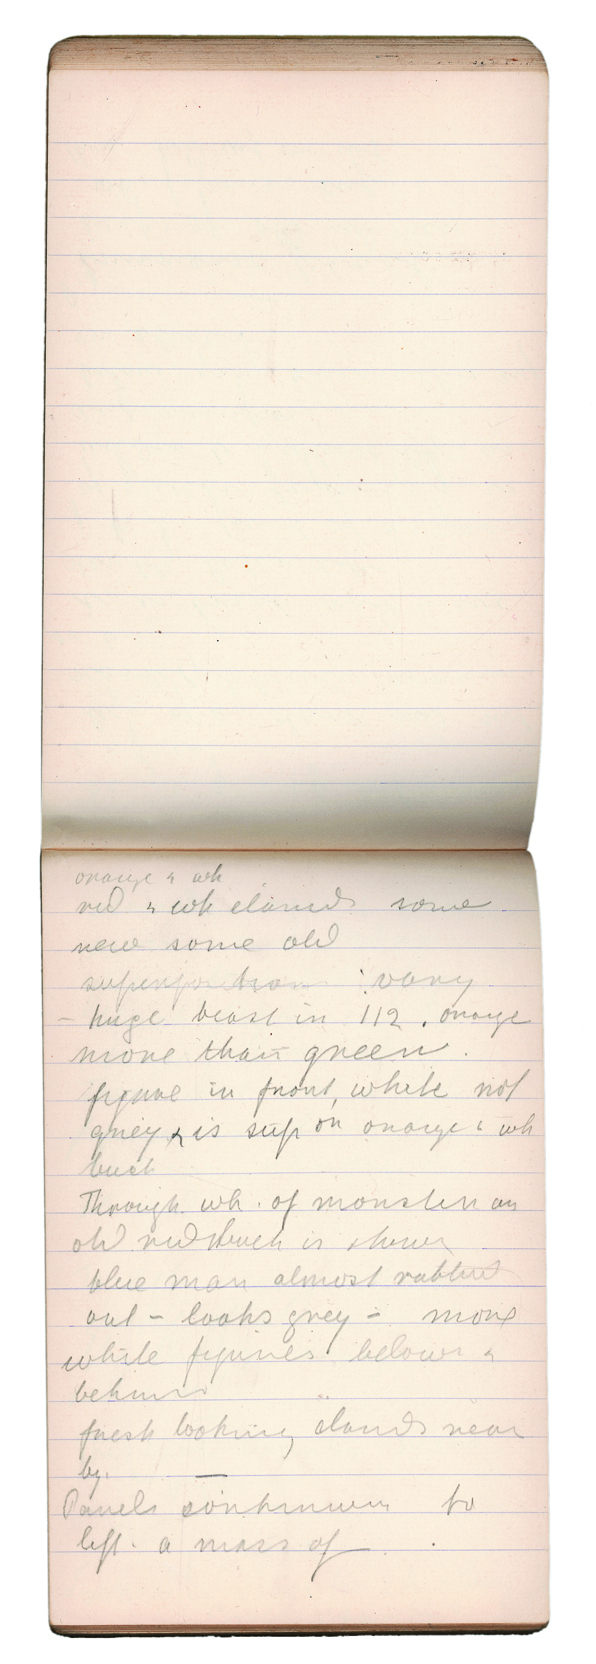 orange & wh
red & wh elands some
new some old
superposition vary
- huge beast in 112. orange
more than green.
figure in front, white not
grey & is sup on orange & wh
buck
Through wh. of monster an
old red buck is shown
blue man almost rubbed
out - looks grey - more
white figures below &
behind
fresh looking elands near
by. —
Panels continuing to
left. a mass of